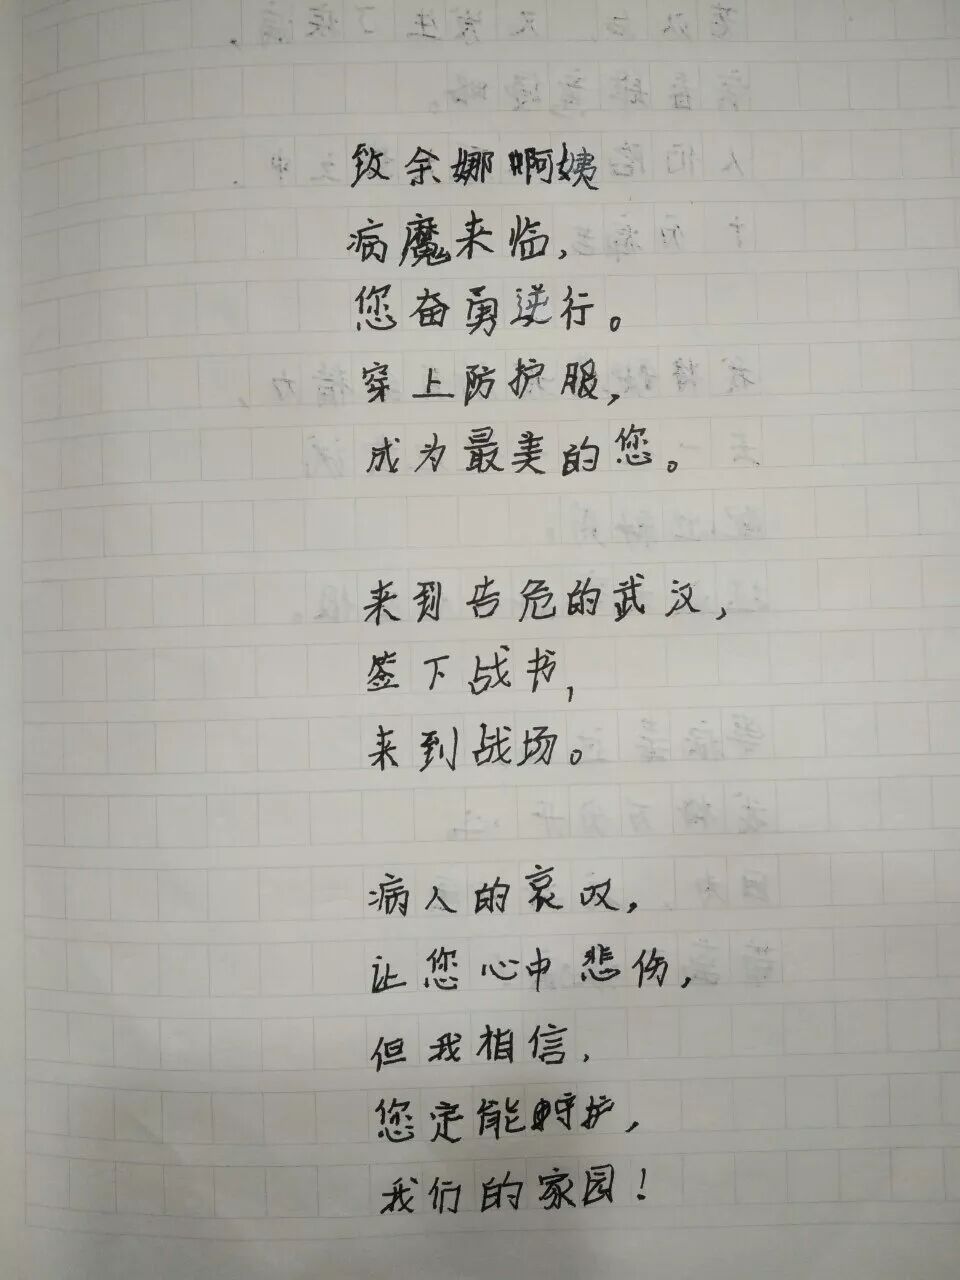 致余娜啊姨
病魔来临，
您奋勇逆行。
穿上防护服，
成为最美的您。
来到告危的武汉，
签下战书，
来到战场。
病人的哀叹，
让您心中悲伤，
但我相信，
您定能守护，
我们的家园！